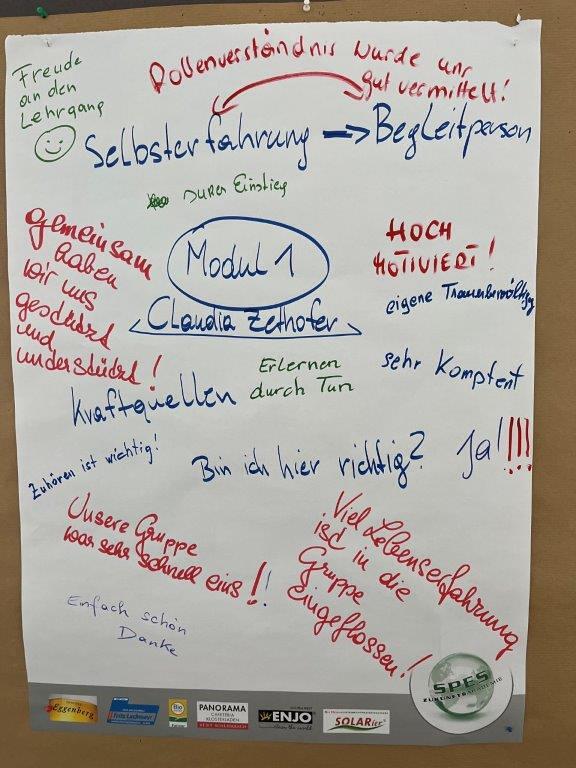 Freude
an den
Lehrgang
Rollenverständnis wurde uns
gut vermittelt!
Selbsterfahrung => Begleitperson
super Einstieg
gemeinsam
haben
wir uns
gestützt
und
understützt!
Modul 1
Claudia Zethofer
HOCH
MOTIVIERT!
eigene Trauerbewältigg
Erlernen
durch Tun
sehr Komptent
Kraftquellen
Zuhören ist wichtig!
Bin ich hier richtig? Ja!!!!
Unsere Gruppe
war sehr schnell eins!!
Viel Lebenserfahrung
ist in die
Gruppe
eingeflossen!
Einfach schön
Danke
SPES
ZUKUNFTSAKADEMIE
Eggenberg
Bio
PANORAMA
CAFETERIA
KLOSTERLADEN
ENJO
SOLARier